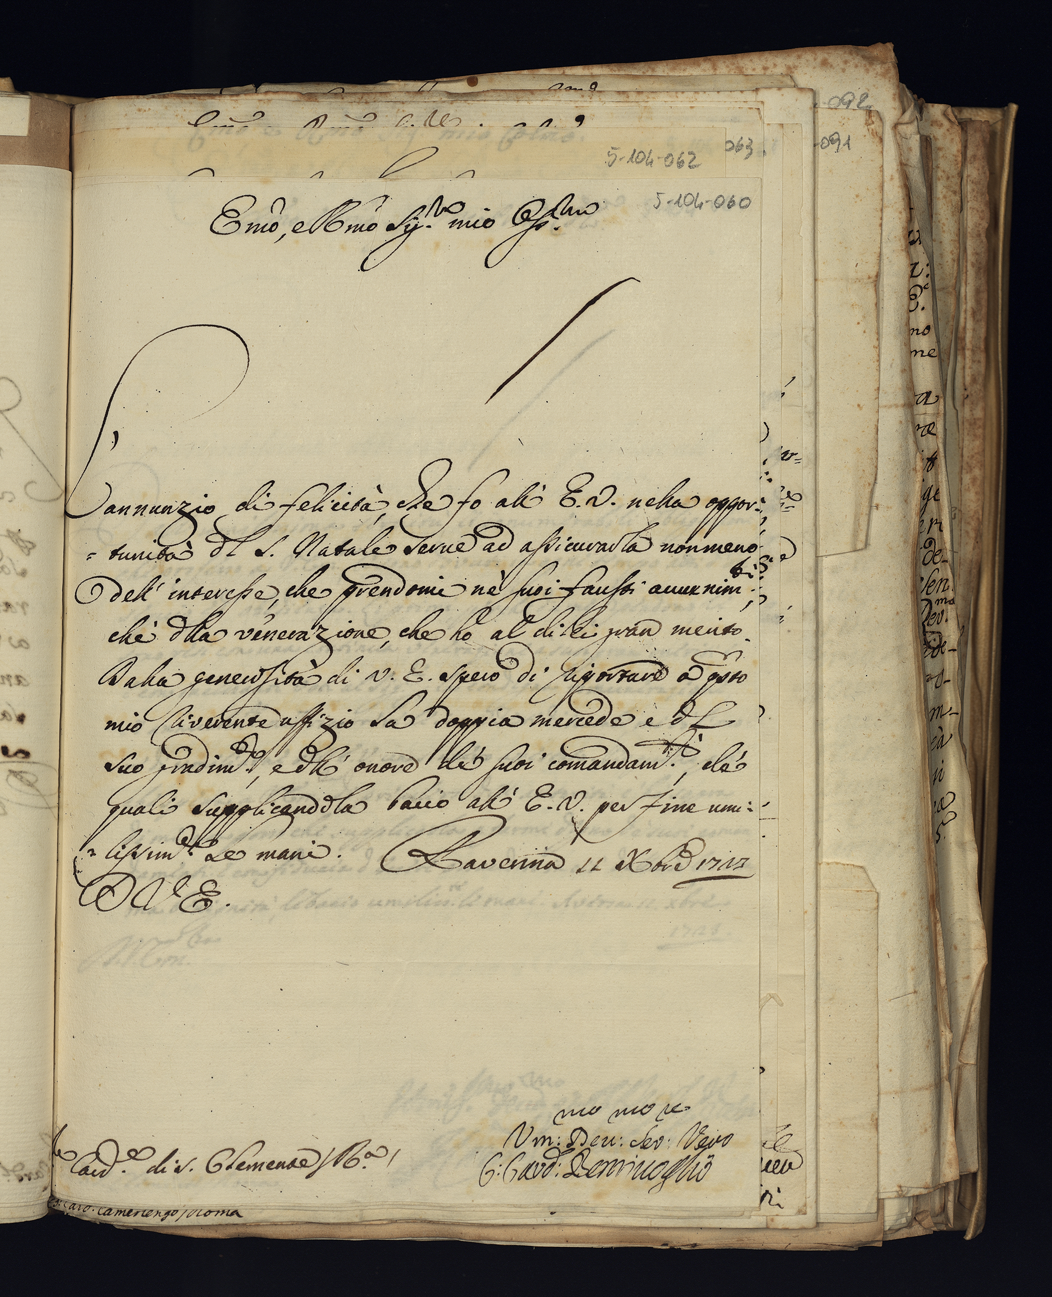 -092
-091
063
5-104-062
5-104-060
Emo, e Rmo Sig.re mio Oss.mo
L'annunzio di felicità, che fo all' E. V. nella oppor=
=tunità dl S. Natale serve ad assicurarla nonmeno
dell' interesse, che prendomi ne' suoi fausti avvenim.ti,
che dlla venerazione, che ho al di lei gran merito.
Dalla generosità di V. E. spero di riportare a qsto
mio riverente uffizio la doppia mercede e dl
suo gradim.to, e dll' onore de' suoi comandam.ti, de'
quali supplicandola bacio all' E. V. per fine umi=
=lissim.te le mani. Ravenna 11 Xbre 1727
D V. E.
mo mo re
Um: Dev: Ser: Vero
G: Card. Bentivoglio
Card.le di S. Clemente / Ra /
Card. Camerlengo / Roma